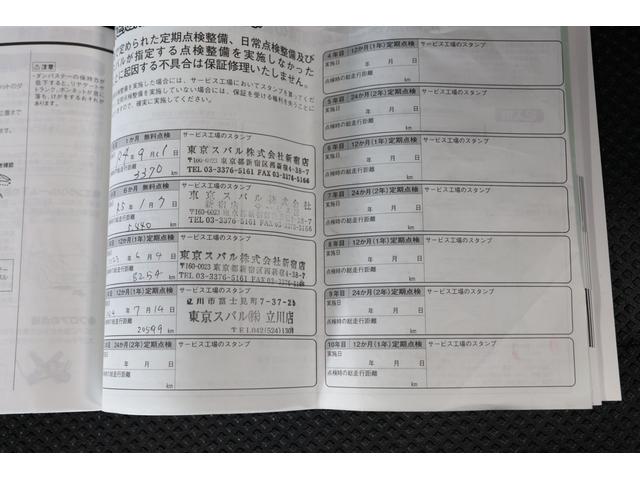 注意
・ダンパステーの保持力が
低下すると、リヤゲートや
トランク、ボンネットが急に
落ち、けがをするおそれが
あります。
定められた定期点検整備、日常点検整備及び
バルが指定する点検整備を実施しなかった
に起因する不具合は保証修理いたしません。
整備を実施した場合には、サービス工場においてスタンプを
定期点検整備を実施していない場合には、保証を受ける権利を失うことに
ますので、確実に実施してください。
1か月 無料点検
サービス工場のスタンプ
年 9月 1日
総走行距離
3370
km
東京スバル株式会社新宿店
〒160-0023 東京都新宿区西新宿4-38-7
TEL 03-3376-5161 FAX 03-3376-5166
6か月 無料点検
サービス工場のスタンプ
R5年 1月 7日
総走行距離
km
東京スバル株式会社
新宿店
〒160-0023 東京都新宿区西新宿4-38-7
TEL 03-3376-5161 FAX 03-3376-5166
12か月(1年)定期点検
サービス工場のスタンプ
年 6月 9日
総走行距離
8254
km
東京スバル株式会社新宿店
〒160-0023 東京都新宿区西新宿4-38-7
TEL 03-3376-5161 FAX 03-3376-5166
12か月(1年)定期点検
サービス工場のスタンプ
年 7月 14日
の総走行距離
20599
km
立川市富士見町7-37-25
東京スバル㈱ 立川店
TEL 042(524)1301
24か月(2年)定期点検
サービス工場のスタンプ
年 月 日
時の総走行距離
km
4年目 12か月(1年)定期点検
サービス工場のスタンプ
実施日 年 月 日
点検時の総走行距離
km
5年目 24か月(2年)定期点検
サービス工場のスタンプ
実施日 年 月 日
点検時の総走行距離
km
6年目 12か月(1年)定期点検
サービス工場のスタンプ
実施日 年 月 日
点検時の総走行距離
km
7年目 24か月(2年)定期点検
サービス工場のスタンプ
実施日 年 月 日
点検時の総走行距離
km
8年目 12か月(1年)定期点検
サービス工場のスタンプ
実施日 年 月 日
点検時の総走行距離
km
9年目 24か月(2年)定期点検
サービス工場のスタンプ
実施日 年 月 日
点検時の総走行距離
km
10年目 12か月(1年)定期点検
サービス工場のスタンプ
実施日 年 月 日
点検時の総走行距離
km